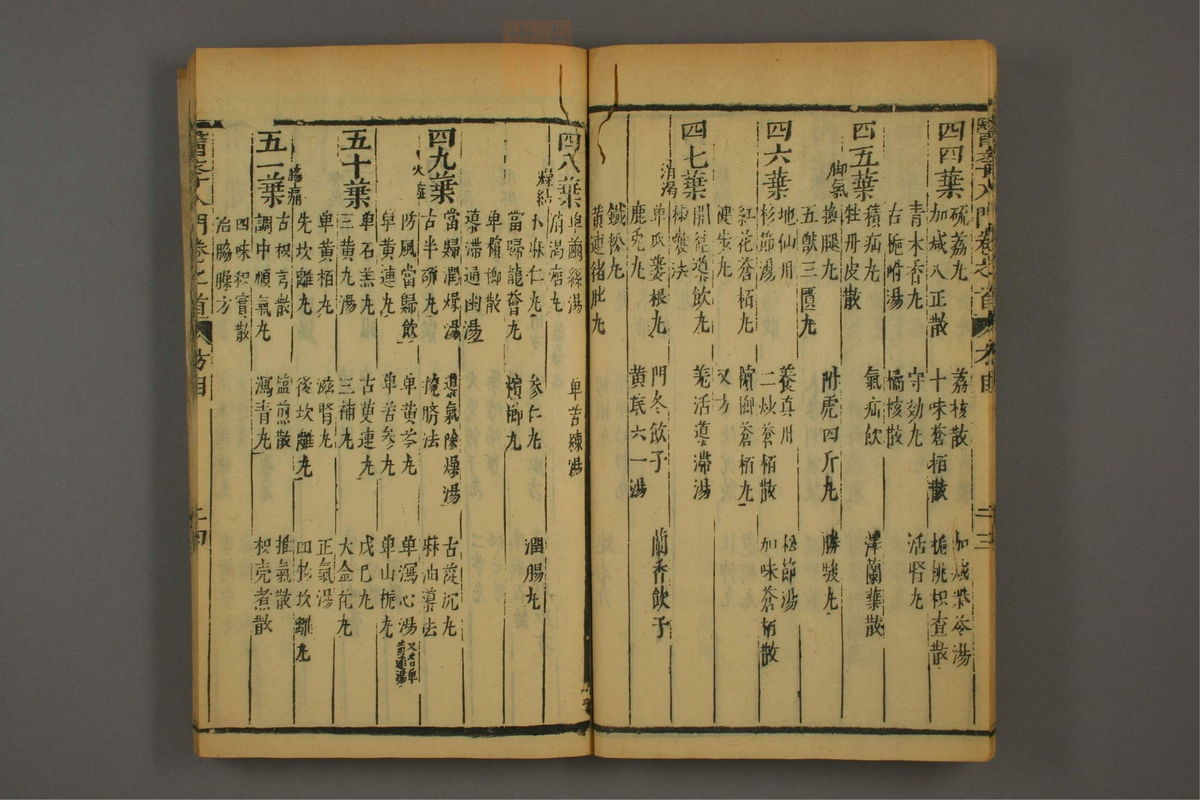 四四葉
硫荔丸 荔核散 加減柴苓湯
加減八正散 十味蒼栢散 梔桃枳查散
青木香丸 守効丸 活腎丸
古梔湯 橘核散
四五葉
積疝丸 氣疝飲 澤蘭葉散
脚氣
牡丹皮散
換腿丸 附虎四斤丸 勝駿丸
五獸三匱丸
四六葉
地仙丹 養真丹 松節湯
杉節湯 二炒蒼栢散 加味蒼栢散
紅花蒼栢丸 檳御蒼栢丸
健步丸 又方
四七葉
開結導飲丸 羌活導滯湯
消渴
單瓜蔞根丸 門冬飲子 蘭香飲子
鹿兎丸 黃芪六一湯
黃連猪肚丸
四八葉
單繭絲湯 單苦練湯
燥結
麻仁丸 參仁丸 潤腸丸
當歸龍薈丸 檳榔丸
單檳榔散
導滯通幽湯
四九葉
當歸潤燥湯 導氣除燥湯 古蓯沉丸
火
古半硫丸 掩臍法 麻油導法
防風當歸飲 單黃芩丸 單瀉心湯
單黃連丸 單苦參丸 單山梔丸
單石羔丸 古萸連丸 戊巳丸
五十葉
三黃丸湯 三補丸 大金花丸
單黃栢丸 滋腎丸 正氣湯
先坎離丸 後坎離丸 四物坎離丸
脇痛
古枳芎散 塩煎散 推氣散
五一葉
調中順氣丸 瀉青丸 枳壳煮散
四味枳實散
治脇臊方